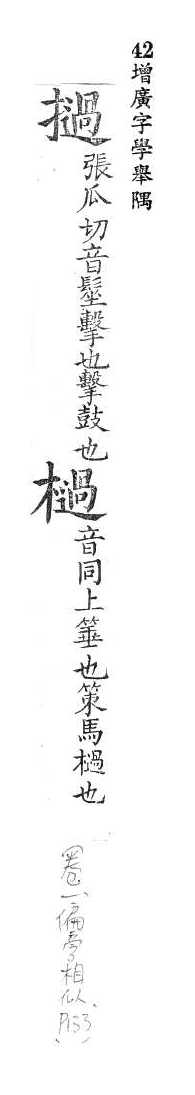 42增廣字學舉隅
撾張瓜切音髽擊也擊鼓也檛音同上箠也策馬檛也
卷一、偏旁相似、